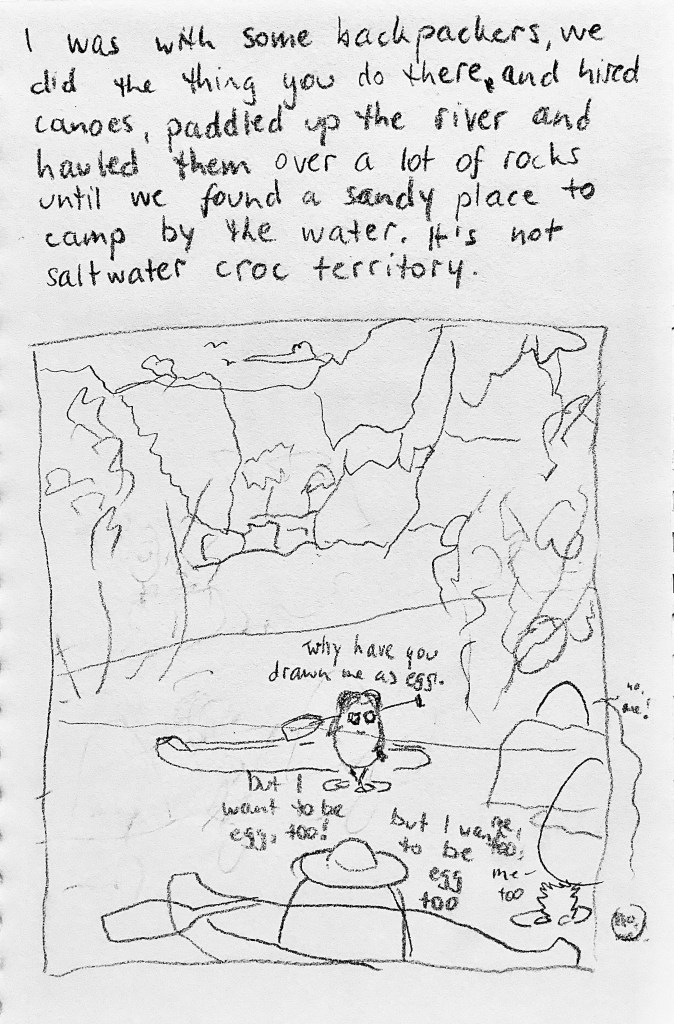 I was with some backpackers, we
did the thing you do there, and hired
canoes, paddled up the river and
hauled them over a lot of rocks
until we found a sandy place to
camp by the water. It's not
saltwater croc territory.
Why have you
drawn me as egg.
no,
me!
but I
want to be
egg, too!
but I want
to be
egg
too
me,
too,
me
too
No,